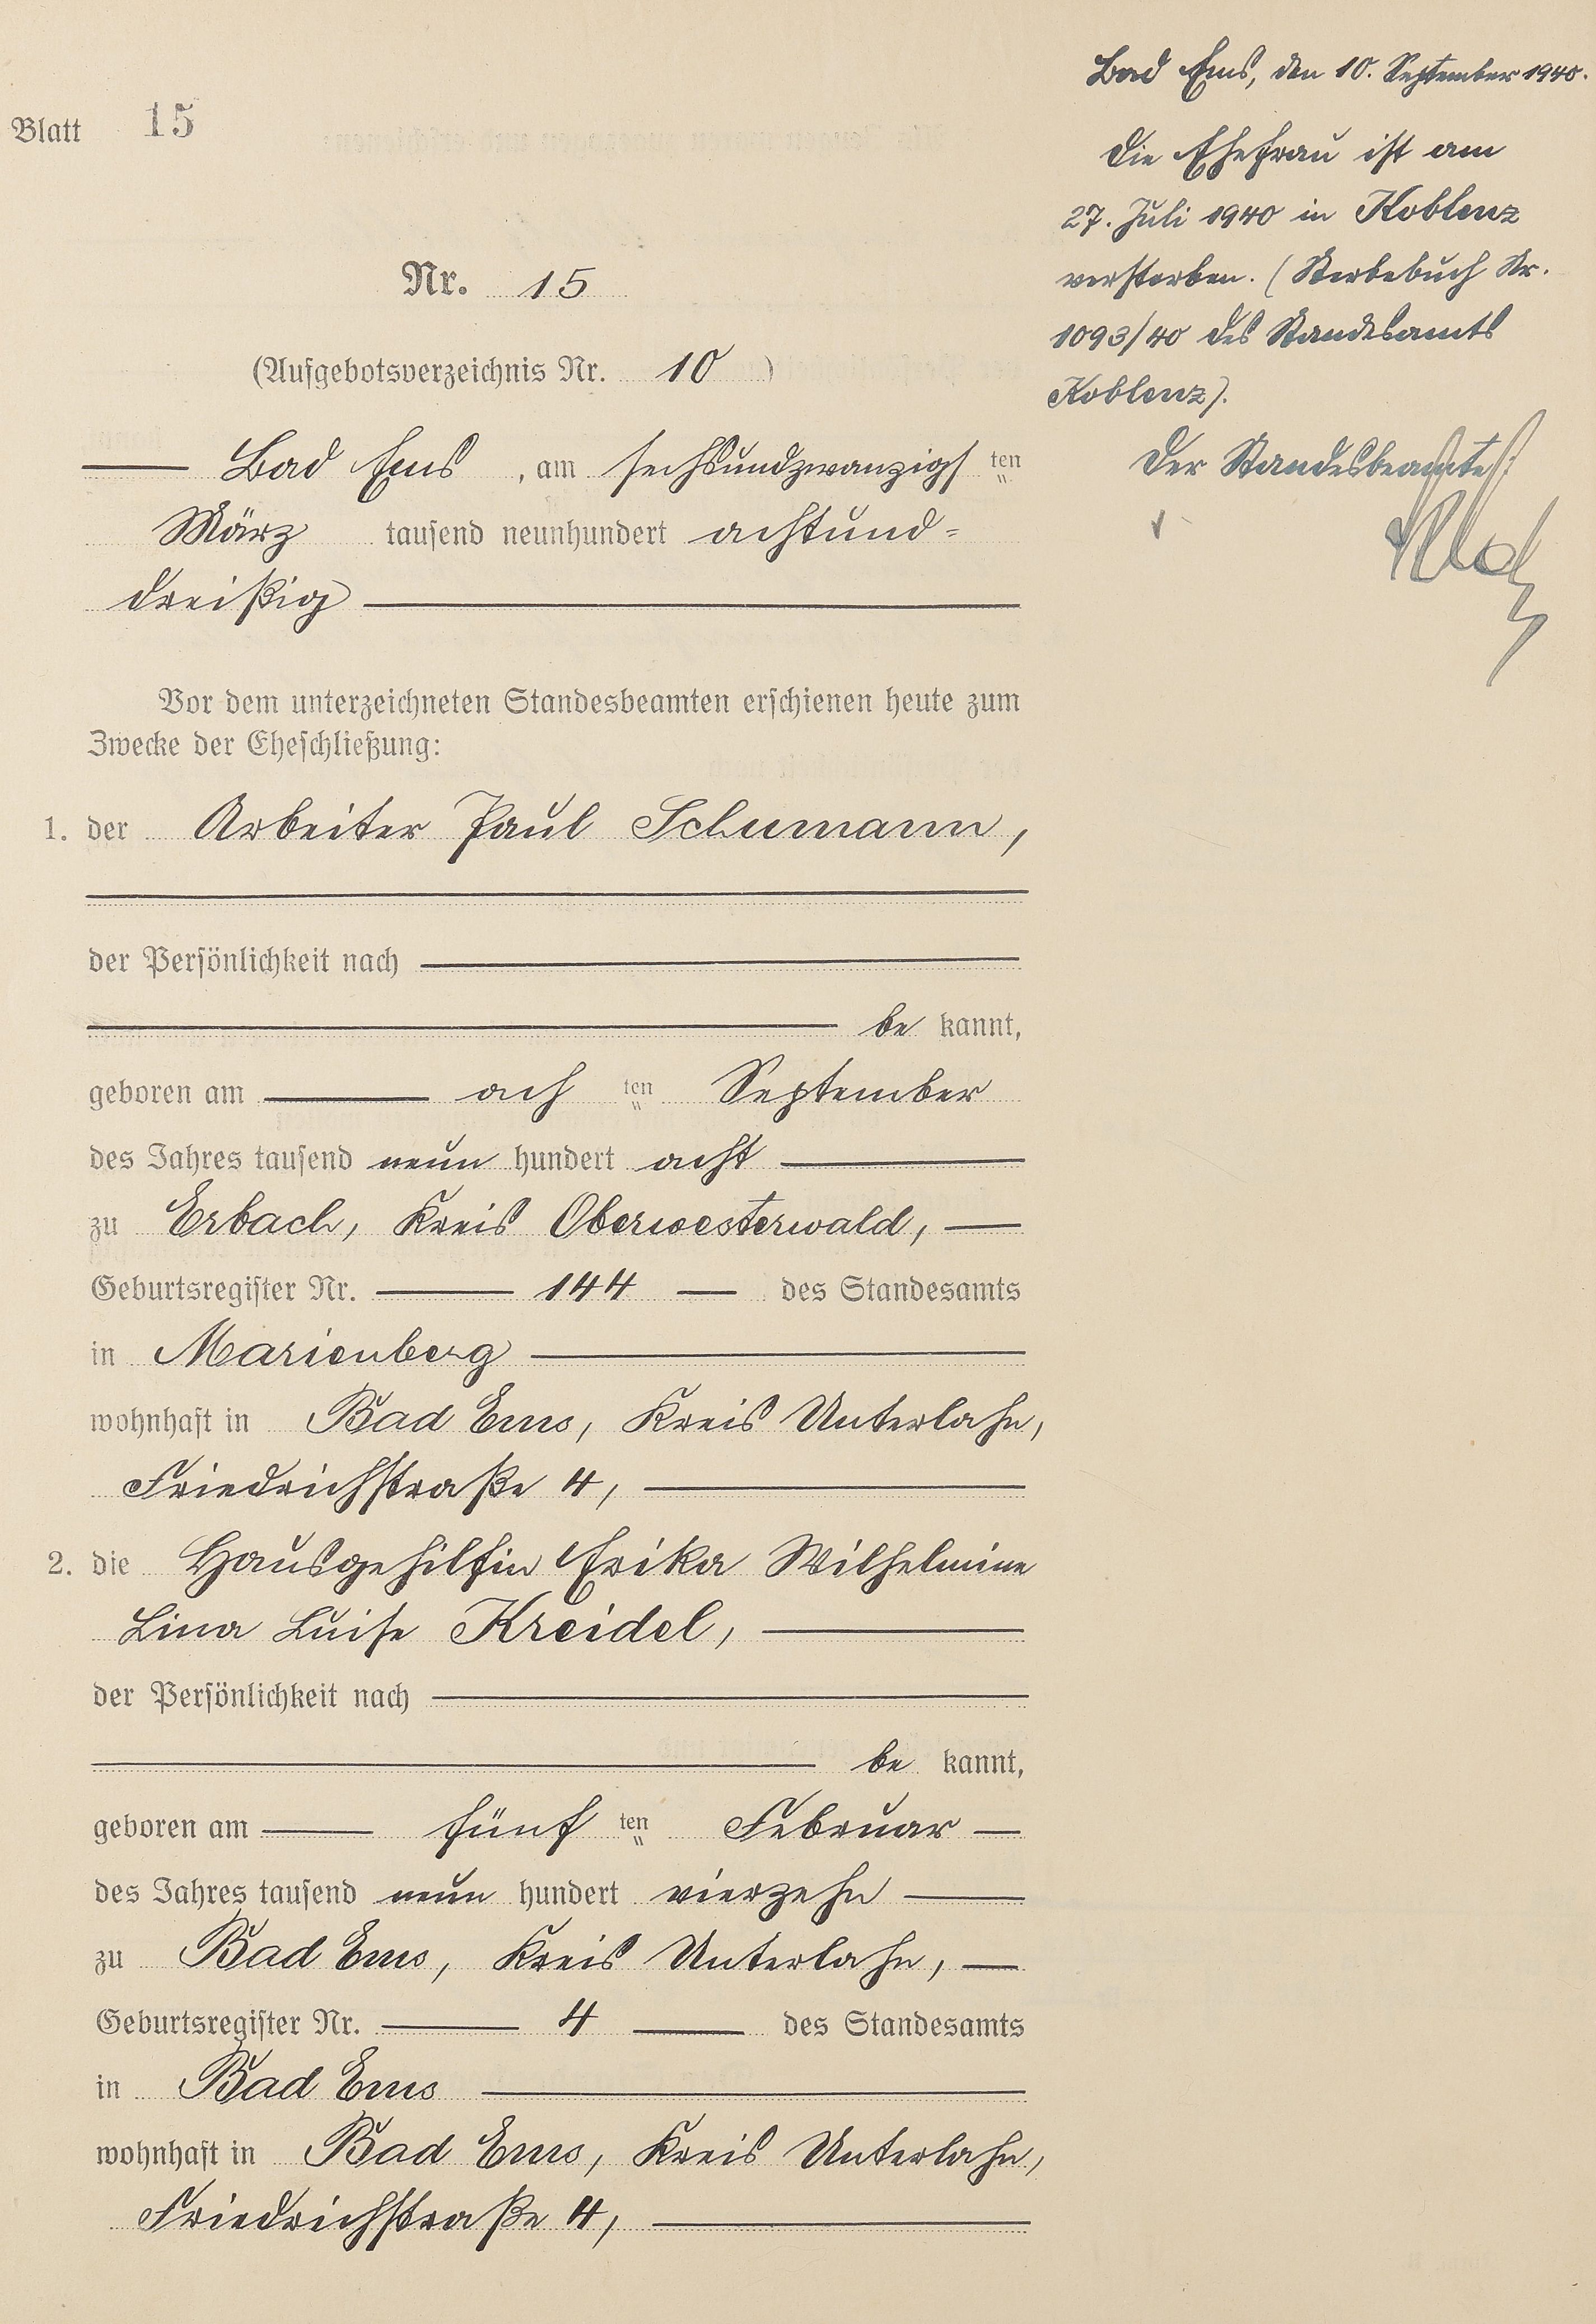 Blatt 15
Nr. 15
(Aufgebotsverzeichnis Nr. 10)
Bad Ems, am sechsundzwanzigsten
März tausend neunhundert achtund=
dreißig
Vor dem unterzeichneten Standesbeamten erschienen heute zum
Zwecke der Eheschließung:
1. der Arbeiter Paul Schumann,
der Persönlichkeit nach
be kannt,
geboren am achten September
des Jahres tausend neun hundert acht
zu Erbach, Kreis Oberwesterwald,
Geburtsregister Nr. 144 des Standesamts
in Marienberg
wohnhaft in Bad Ems, Kreis Unterlahn,
Friedrichstraße 4,
2. die Hausgehilfin Erika Wilhelmine
Lina Luise Kreidel,
der Persönlichkeit nach
be kannt,
geboren am fünften Februar
des Jahres tausend neun hundert vierzehn
zu Bad Ems, Kreis Unterlahn,
Geburtsregister Nr. 4 des Standesamts
in Bad Ems
wohnhaft in Bad Ems, Kreis Unterlahn,
Friedrichstraße 4,
Bad Ems, den 10. September 1940.
Die Ehefrau ist am
27. Juli 1940 in Koblenz
verstorben. (Sterbebuch Nr.
1093/40 des Standesamts
Koblenz).
Der Standesbeamte: